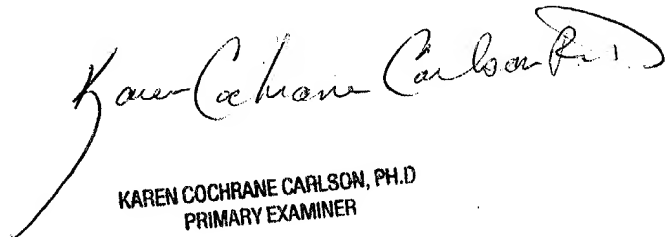 Karen Cochrane Carlson Ph.D
KAREN COCHRANE CARLSON, PH.D
PRIMARY EXAMINER